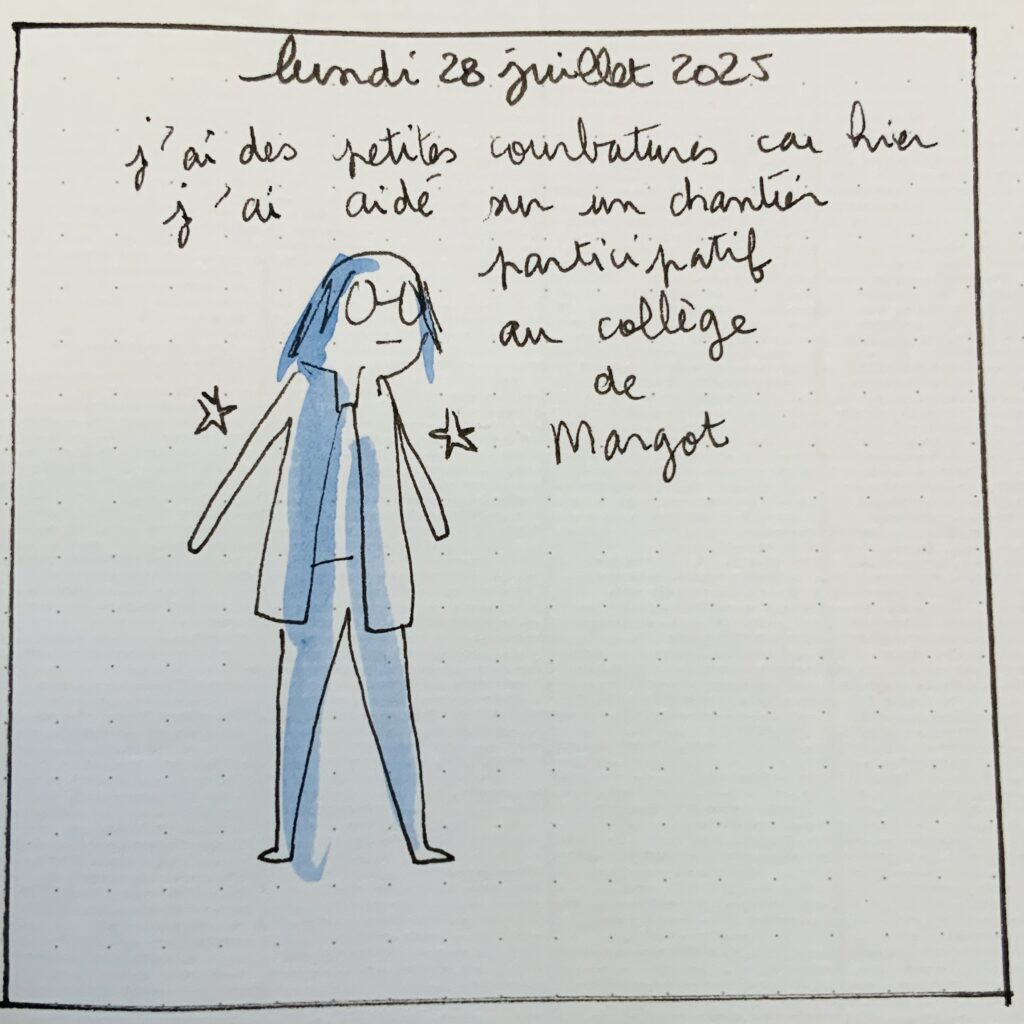 lundi 28 juillet 2025
j'ai des petites courbatures car hier
j'ai aidé sur un chantier
participatif
au collège
de
Margot